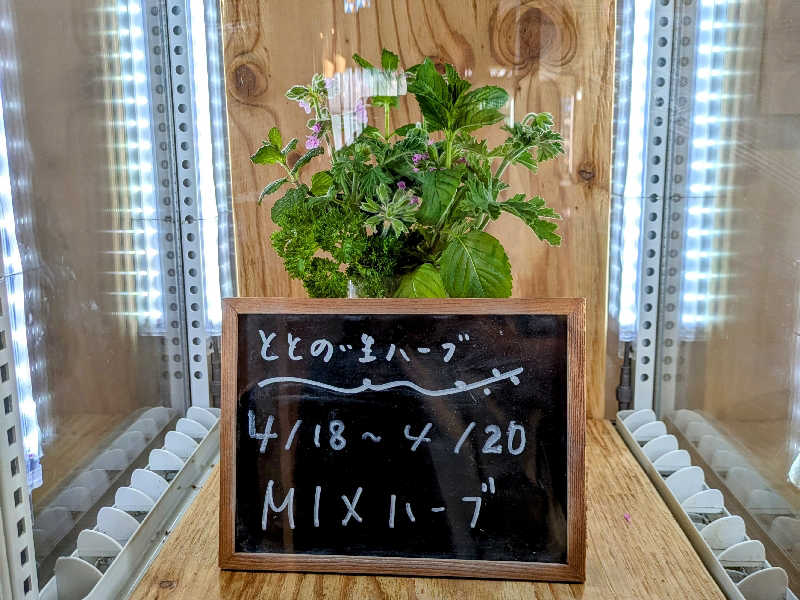 ととのい生ハーブ
4/18~4/20
MIXハーブ